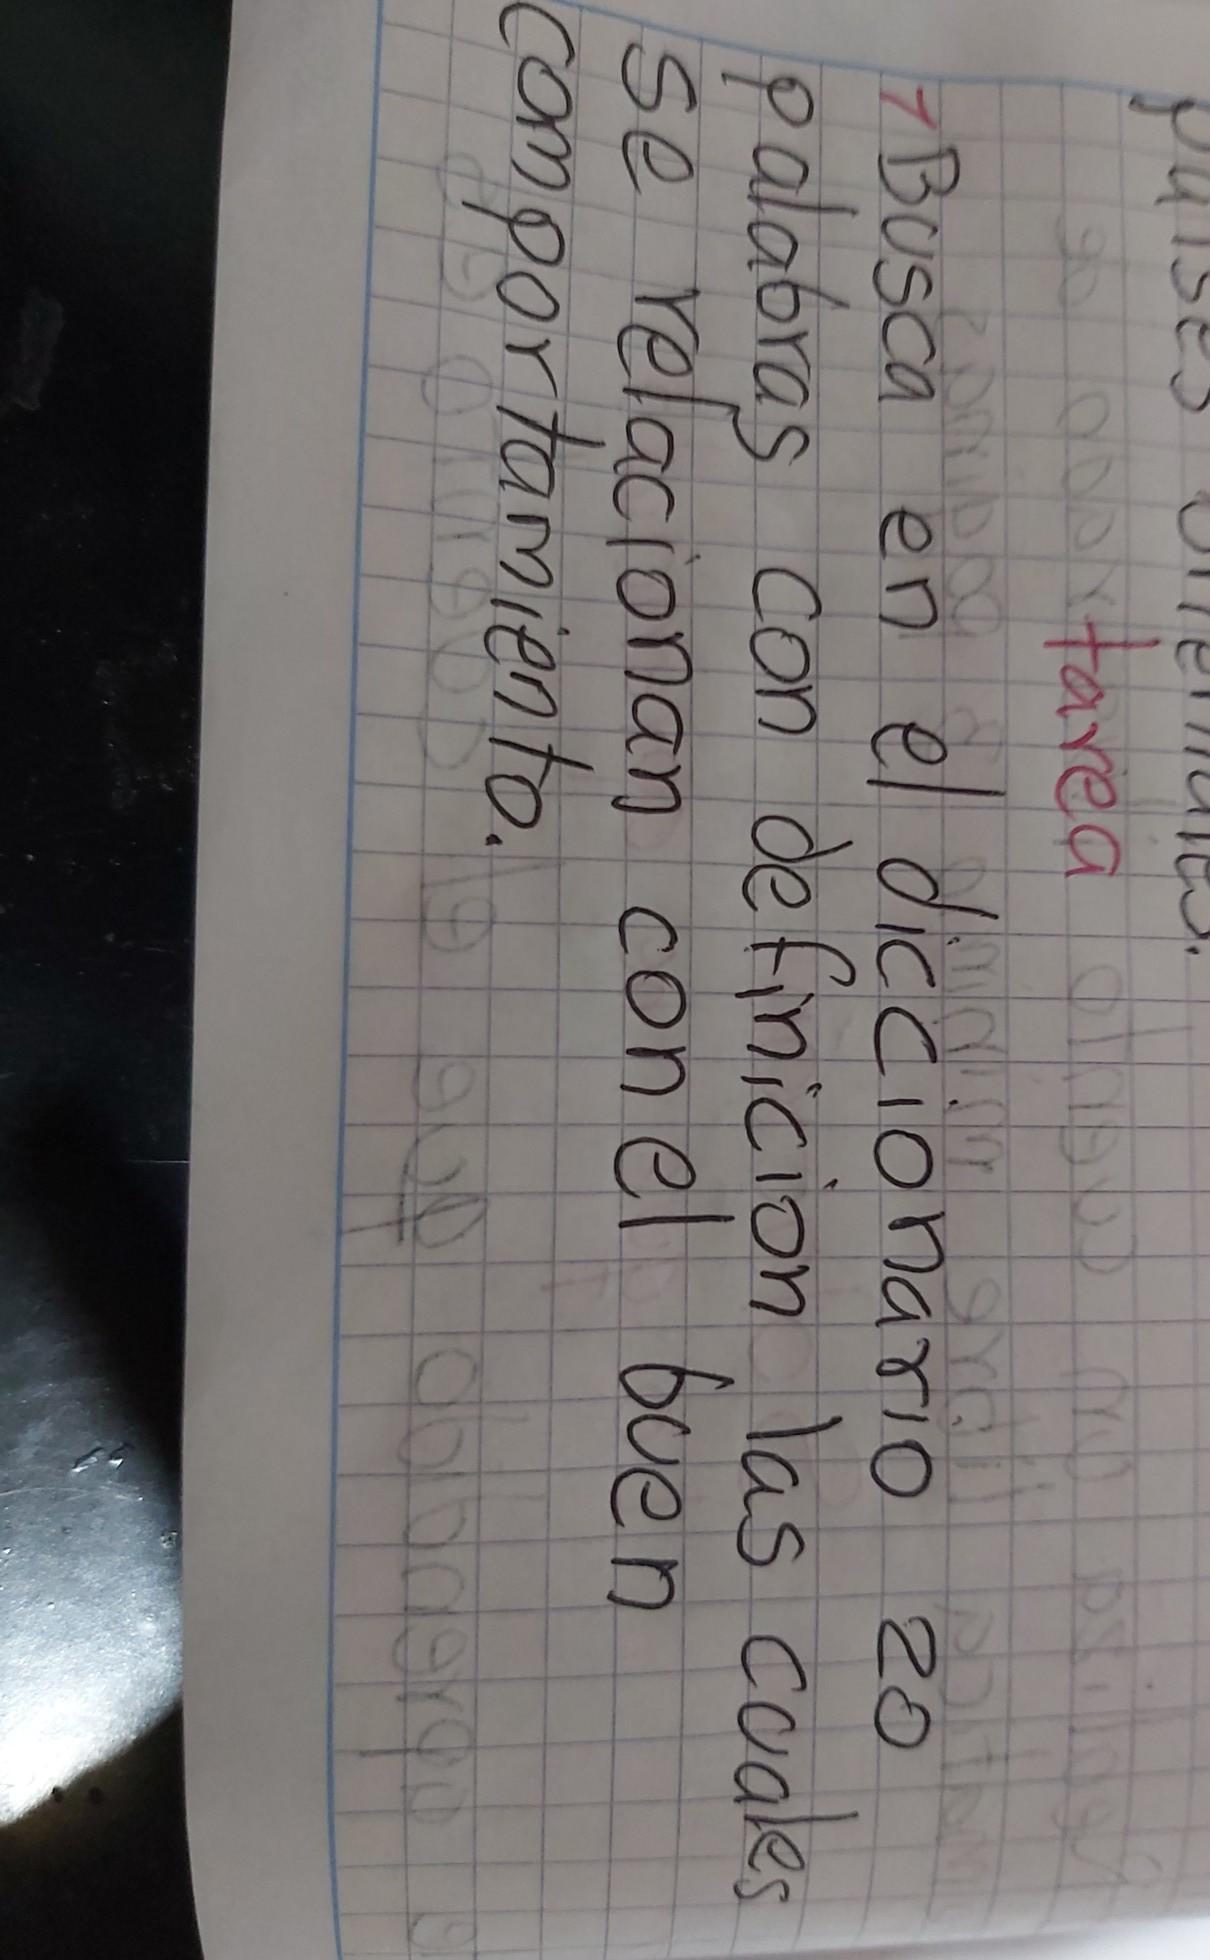 tarea
1 Busca en el diccionario 20
palabras con definicion las cuales
se relacionan con el buen
comportamiento.